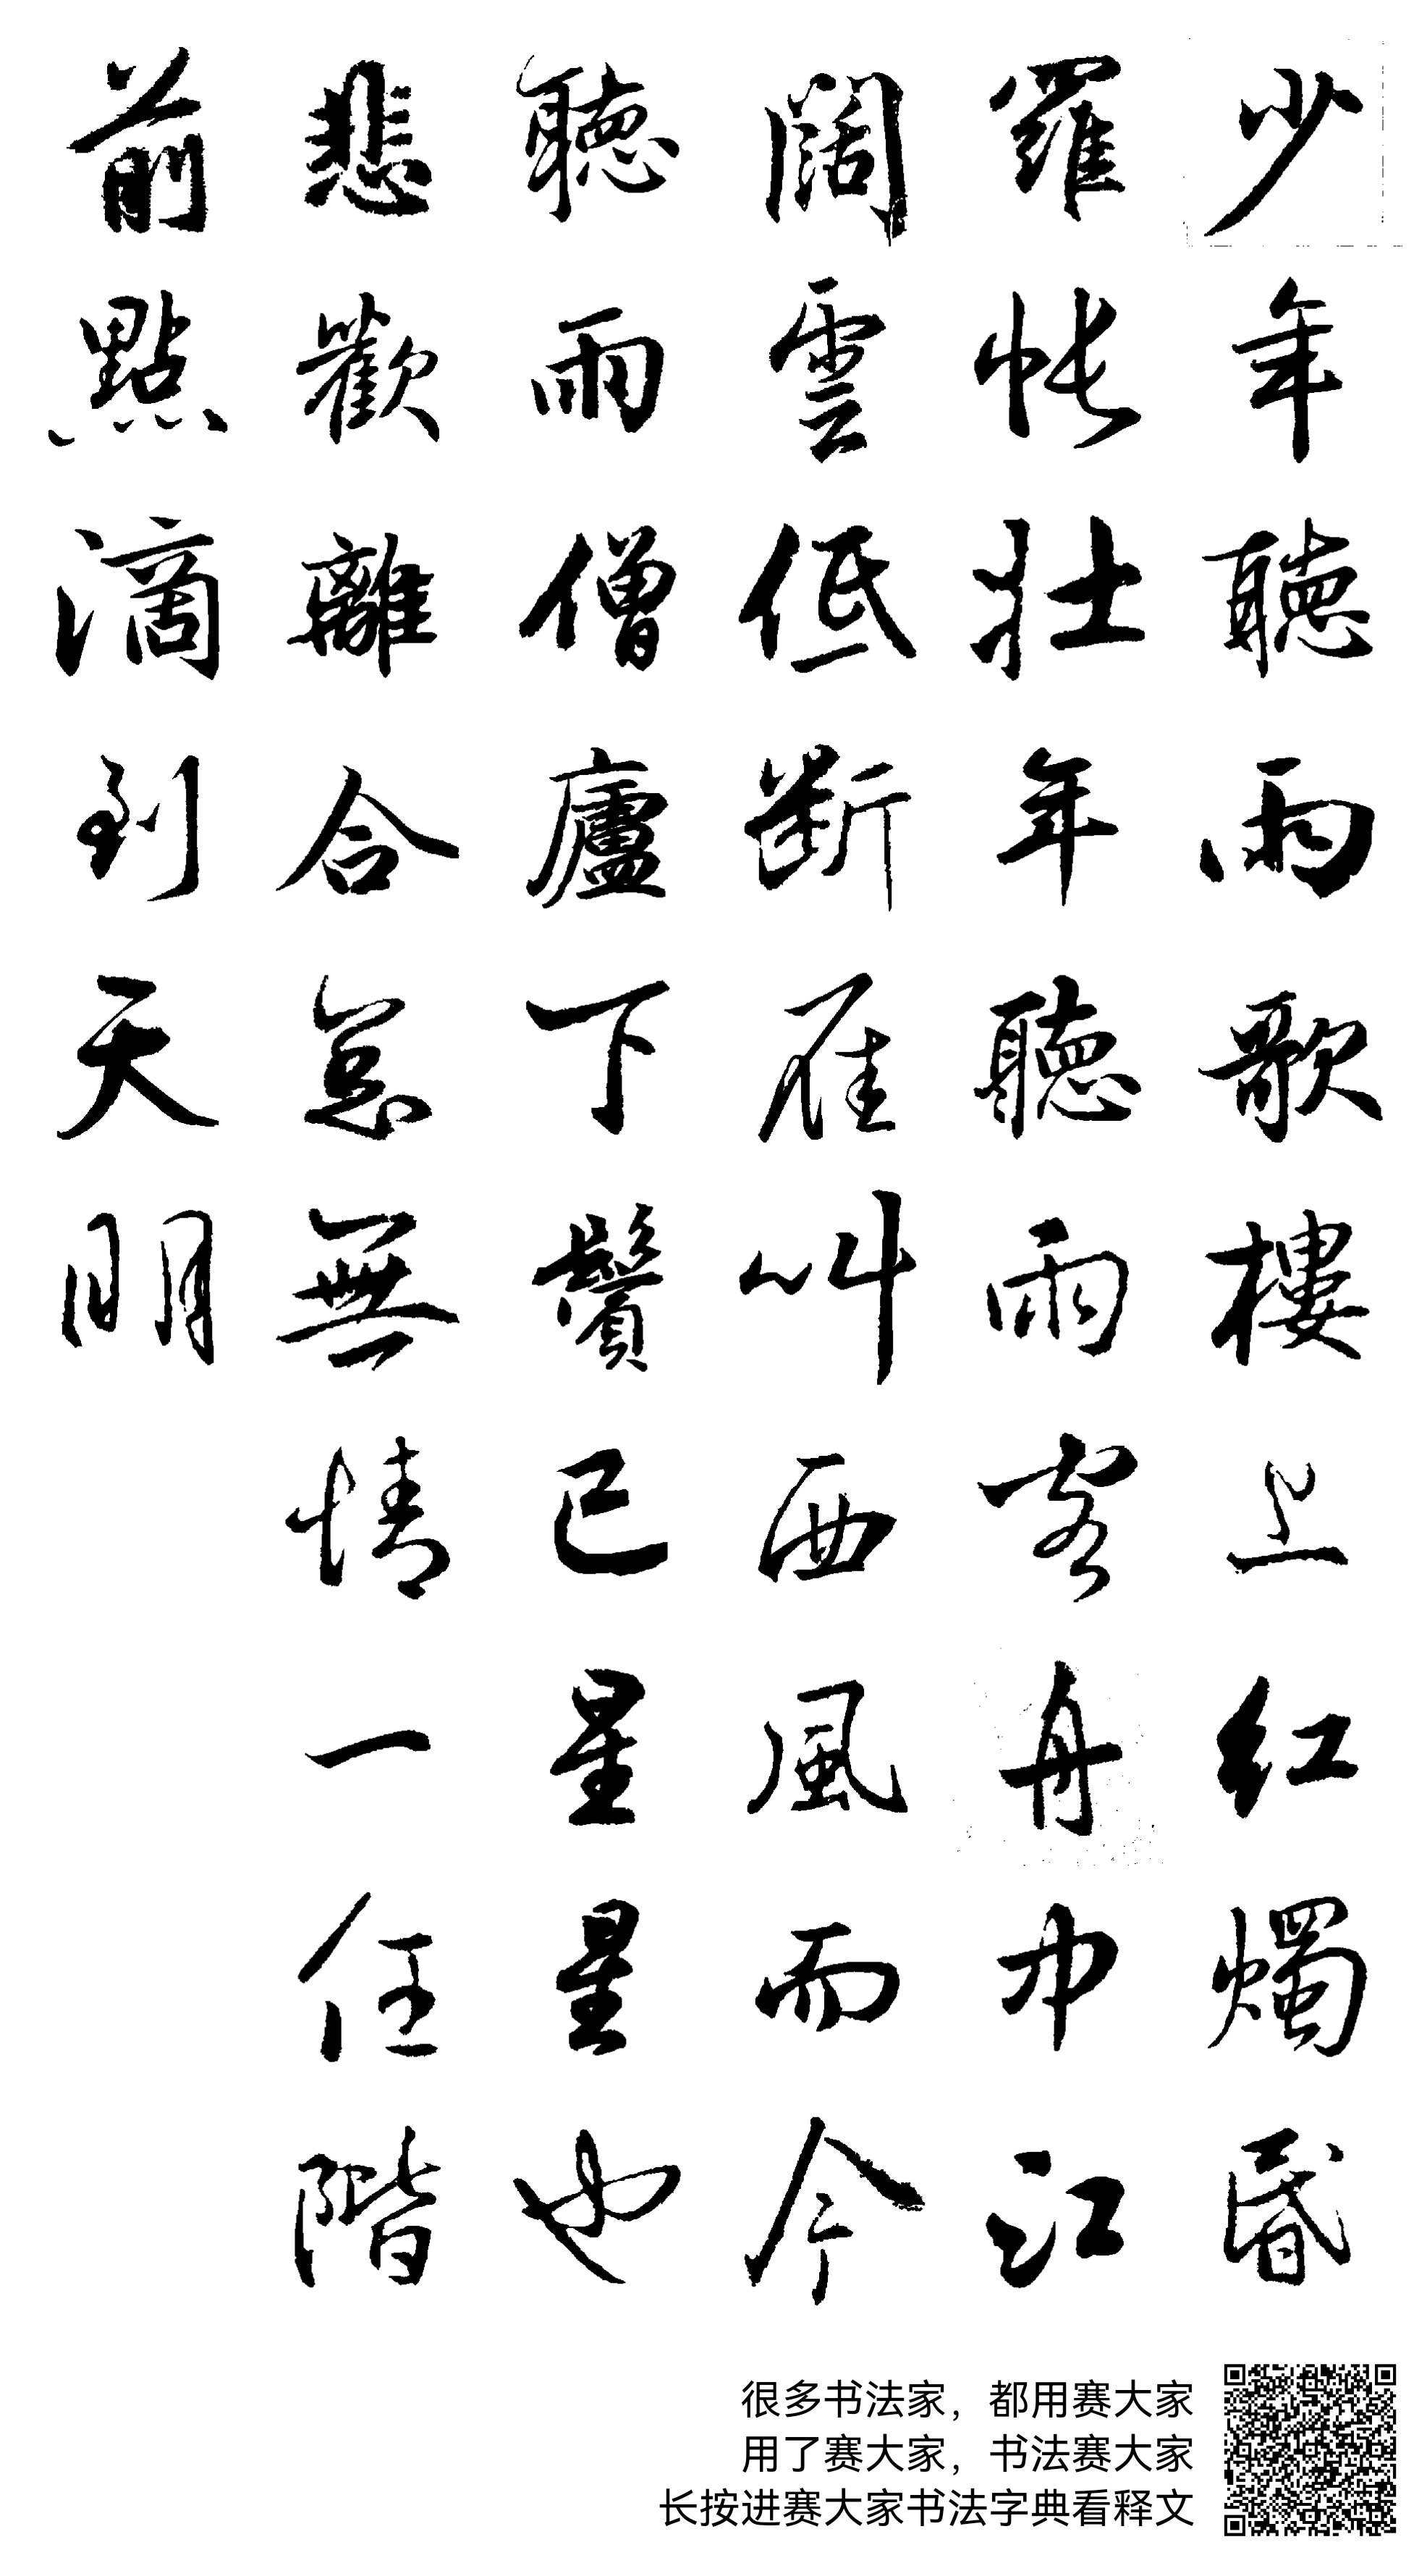 少年聽雨歌樓上红燭昏
羅帐壮年聽雨客舟中江
闊雲低断雁叫西風而今
聽雨僧廬下鬢已星星也
悲歡離合怱無情一任階
前點滴到天明
很多书法家，都用赛大家
用了赛大家，书法赛大家
长按进赛大家书法字典看释文